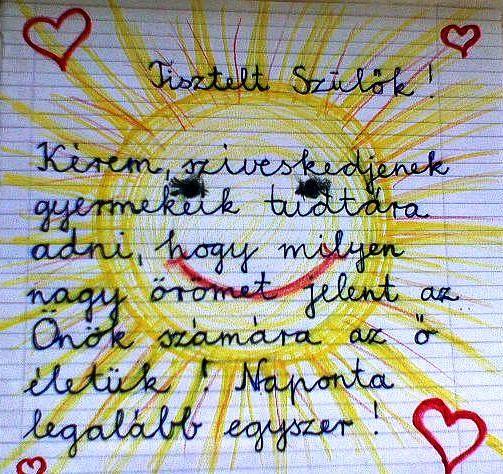 Tisztelt Szülők!
Kérem, sziveskedjenek
gyermekeik tudtára
adni, hogy milyen
nagy örömet jelent az
Önök számára az ő
életük! Naponta
legalább egyszer!